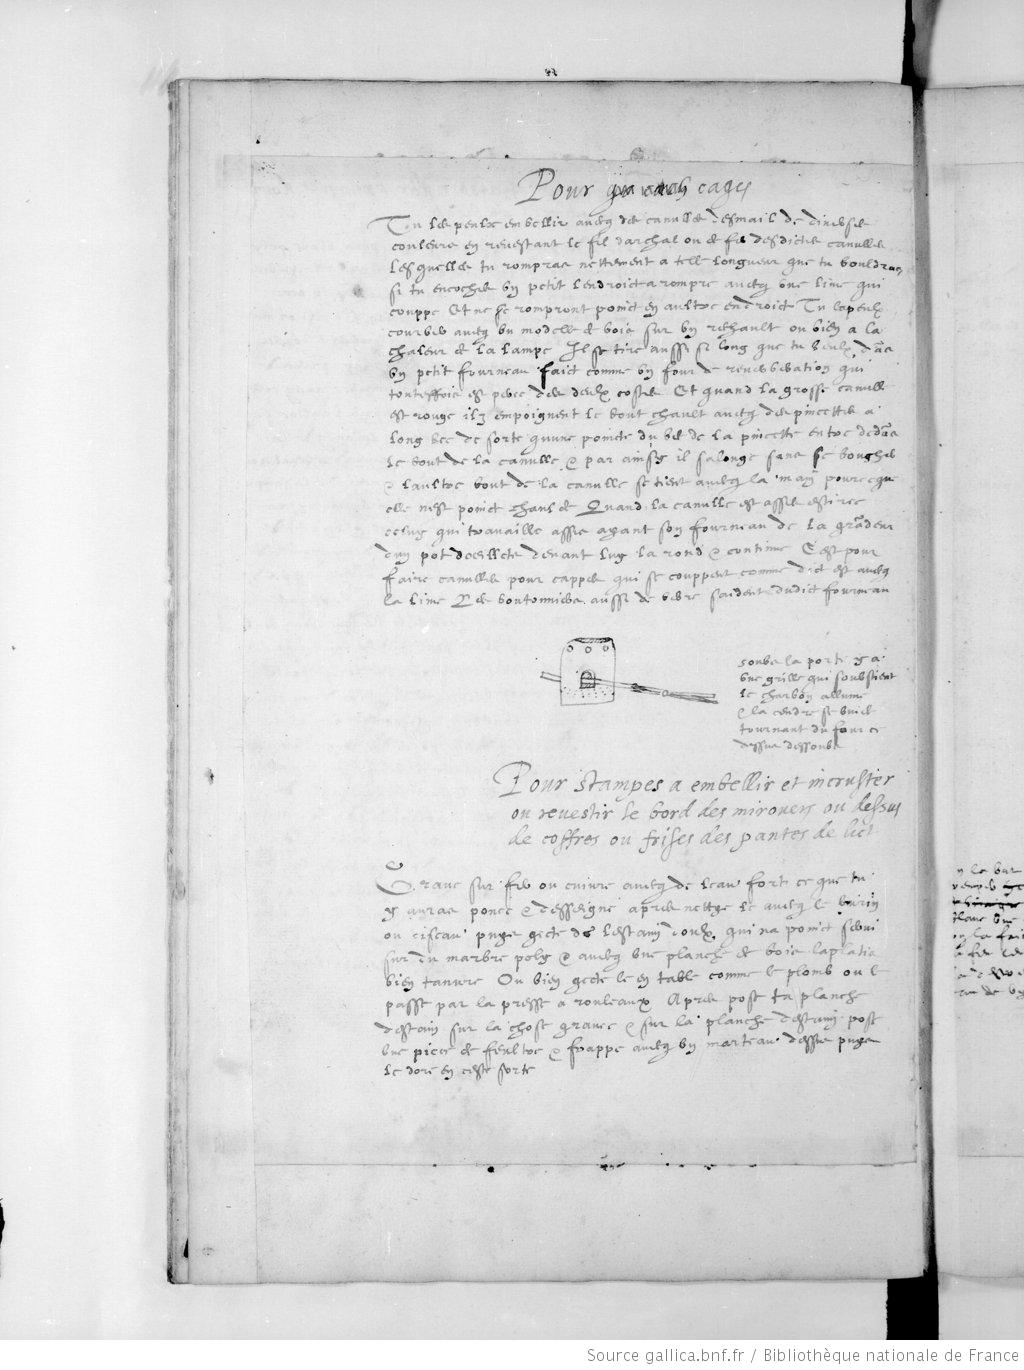 Pour cages
Tu les peulx embellir avecq des canulles desmail de diverses
couleurs en revestant le fil darchal ou de fer desdictes canulles
Lesquelles tu rompras nettement a telle longueur que tu vouldras
si tu encoches un petit lendroict a rompre avecq une lime qui
couppe Et ne se rompront poinct en aultre endroict Tu les peulx
courber avecq un modelle de bois sur un reschault ou bien a la
chaleur de la lampe Il se tire aussi si long que tu veulx dans
un petit fourneau faict comme un four de reverberation qui
touteffois est perce des deulx costes Et quand la grosse canulle
est rouge ilz empoignent le bout chault avecq des pincettes a
long bec de sorte quune poincte du bec de la pincette entre dedans
le bout de la canulle & par ainsy il salonge sans se boucher
& laultre bout de la canulle se tient avecq la main pource que
elle nest poinct chaulde Quand la canulle est asses estiree
celuy qui travaille assis ayant son fourneau de la grandeur
dun pot doeillets devant luy la rond & continue C est pour
faire canulles pour cappes qui se couppent comme dict est avecq
la lime Les boutonniers aussi de verre saident dudict fourneau
soubs la porte y a
une grille qui soubstient
le charbon allume
& la cendre se vuide
tournant du four ce
dessus dessoubs
Pour stampes a embellir et incruster
ou revestir le bord des mirouers ou dessus
de coffres ou frises des pantes de lict
Grave sur fer ou cuivre avecq de leau fort ce que tu
y auras ponce & desseigne apres nettye le avecq le burin
ou ciseau puys gecte de lestaim doulx qui na poinct servi
sur du marbre poly & avecq une planche de bois laplatis
bien tanvre Ou bien gecte le en table comme le plomb ou le
passe par la presse a rouleaux Apres pose ta planche
destaim sur la chose gravee & sur la planche destaim pose
une piece de feultre & frappe avecq un marteau dessus puys
le dore en ceste sorte
Source gallica.bnf.fr / Bibliothèque nationale de France